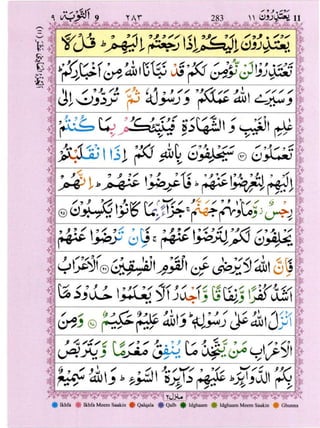 ٩ اَلتَّوْبَة ٩ ٢٨٣ 283 ١١ يَعْتَذِرُوْنَ 11
يَعْتَذِرُوْنَ اِلَيْكُمْ اِذَا رَجَعْتُمْ اِلَيْهِمْ ؕ قُلْ لَّا
تَعْتَذِرُوْا لَنْ نُّؤْمِنَ لَكُمْ قَدْ نَبَّاَنَا اللّٰهُ مِنْ اَخْبَارِكُمْ ؕ
وَ سَيَرَى اللّٰهُ عَمَلَكُمْ وَ رَسُوْلُهٗ ثُمَّ تُرَدُّوْنَ اِلٰى
عٰلِمِ الْغَيْبِ وَ الشَّهَادَةِ فَيُنَبِّئُكُمْ بِمَا كُنْتُمْ
تَعْمَلُوْنَ ﴿۹۴﴾ سَيَحْلِفُوْنَ بِاللّٰهِ لَكُمْ اِذَا انْقَلَبْتُمْ
اِلَيْهِمْ لِتُعْرِضُوْا عَنْهُمْ ؕ فَاَعْرِضُوْا عَنْهُمْ ؕ اِنَّهُمْ
رِجْسٌ ؗ وَّ مَاْوٰىهُمْ جَهَنَّمُ ۚ جَزَآءًۢ بِمَا كَانُوْا يَكْسِبُوْنَ ﴿۹۵﴾
يَحْلِفُوْنَ لَكُمْ لِتَرْضَوْا عَنْهُمْ ۚ فَاِنْ تَرْضَوْا عَنْهُمْ
فَاِنَّ اللّٰهَ لَا يَرْضٰى عَنِ الْقَوْمِ الْفٰسِقِيْنَ ﴿۹۶﴾ اَلْاَعْرَابُ
اَشَدُّ كُفْرًا وَّ نِفَاقًا وَّ اَجْدَرُ اَلَّا يَعْلَمُوْا حُدُوْدَ مَاۤ
اَنْزَلَ اللّٰهُ عَلٰى رَسُوْلِهٖ ؕ وَ اللّٰهُ عَلِيْمٌ حَكِيْمٌ ﴿۹۷﴾ وَ مِنَ
الْاَعْرَابِ مَنْ يَّتَّخِذُ مَا يُنْفِقُ مَغْرَمًا وَّ يَتَرَبَّصُ
بِكُمُ الدَّوَآئِرَ ؕ عَلَيْهِمْ دَآئِرَةُ السَّوْءِ ؕ وَ اللّٰهُ سَمِيْعٌ
منزل ٢
Ikhfa Ikhfa Meem Saakin Qalqala Qalb Idghaam Idghaam Meem Saakin Ghunna